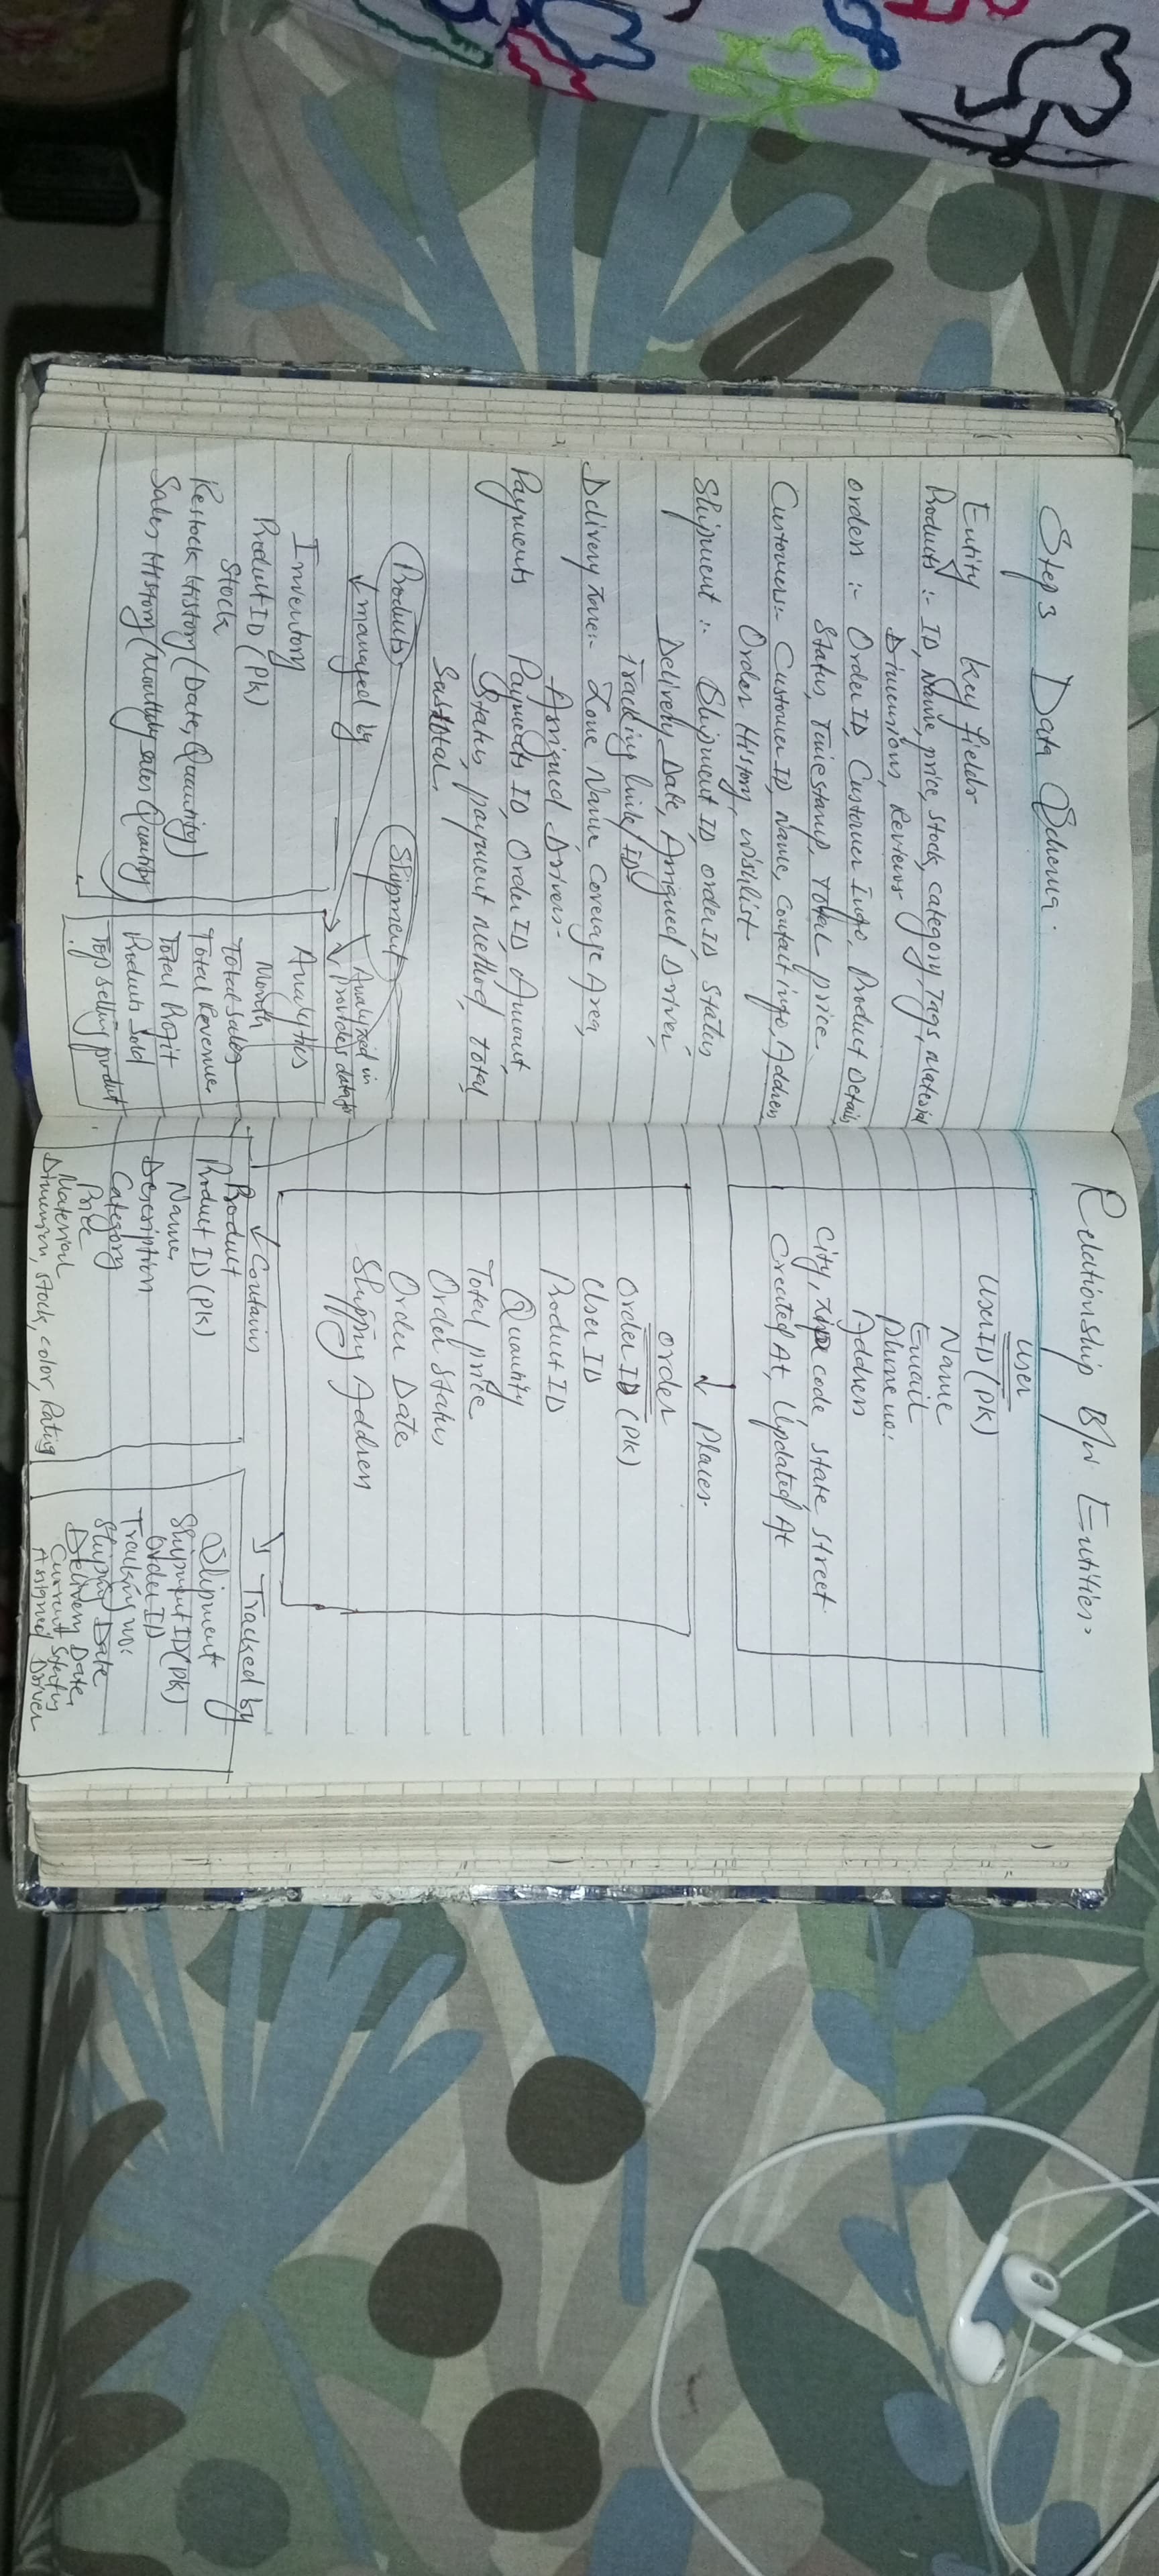 Step 3 Data Schema.
Entity Key fields
Products :- ID, Name, price, stock, category, Tags, Material
Dimensions, Reviews
order :- Order ID, Customer Info, Product Details
Status, Timestamp, Total price.
Customers:- Customer ID, Name, Contact info, Address
Order History, wishlist
Shipment :- Shipment ID, order ID, Status
Delivery Date, Assigned Driver,
Tracking link/ID
Delivery Zone:- Zone Name, Coverage Area,
Assigned Drivers-
Payments Payments ID, Order ID, Amount,
Status, payment Method, Total,
Subtotal.
Products Shipment
managed by
Analyzed in
Provides data to
Inventory
Product ID (PK)
Stock
Restock History (Date, Quantity)
Sales History (Monthly sales Quantity)
Analytics
Month
Total sales
Total Revenue
Total Profit
Products Sold
Top selling product
Relationship B/w Entities.
User
User ID (PK)
Name
Email
Phone no:
Address
City, Zip code state street
Created At, Updated At
Places.
order
Order ID (PK)
User ID
Product ID
Quantity
Total price
Order Status
Order Date
Shipping Address
Contains
Product
Product ID (PK)
Name
Description
Category
Price
Material
Dimension, stock, color, Rating
Tracked by
Shipment
Shipment ID (PK)
Order ID
Tracking no:
Shipping Date
Delivery Date
Current Status
Assigned Driver